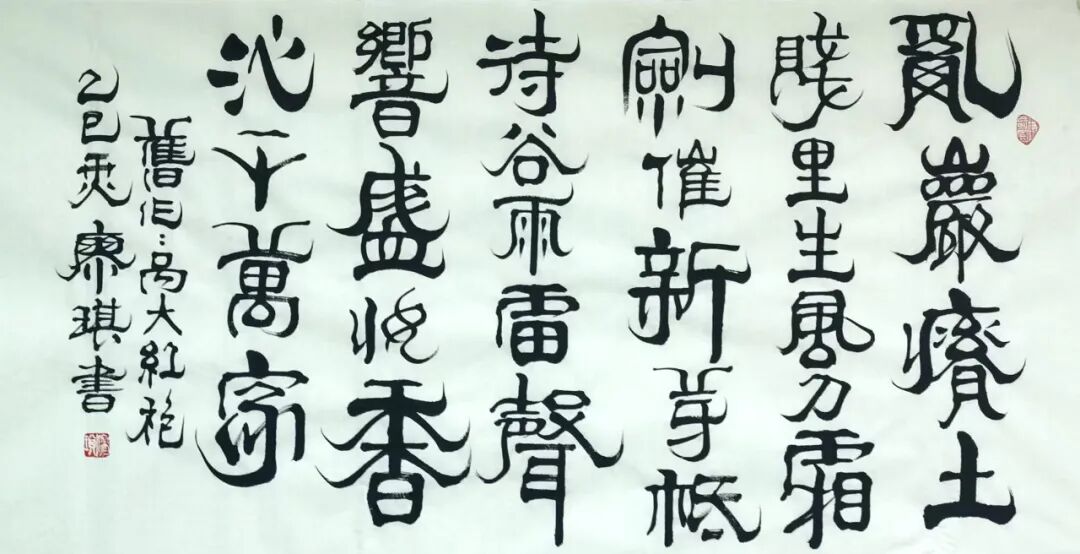 亂巖瘠土
賤里生風刀霜
劍催新芽祗
待谷雨雷聲
響盛妝香
沁千萬家
舊作:高大紅袍
乙巳 廖琪書